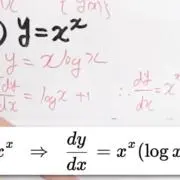 ) y=x^x
y = x log x
dy/dx = log x +1 ∴ dy/dx = x^x
x^x ⇒ dy/dx = x^x (log x